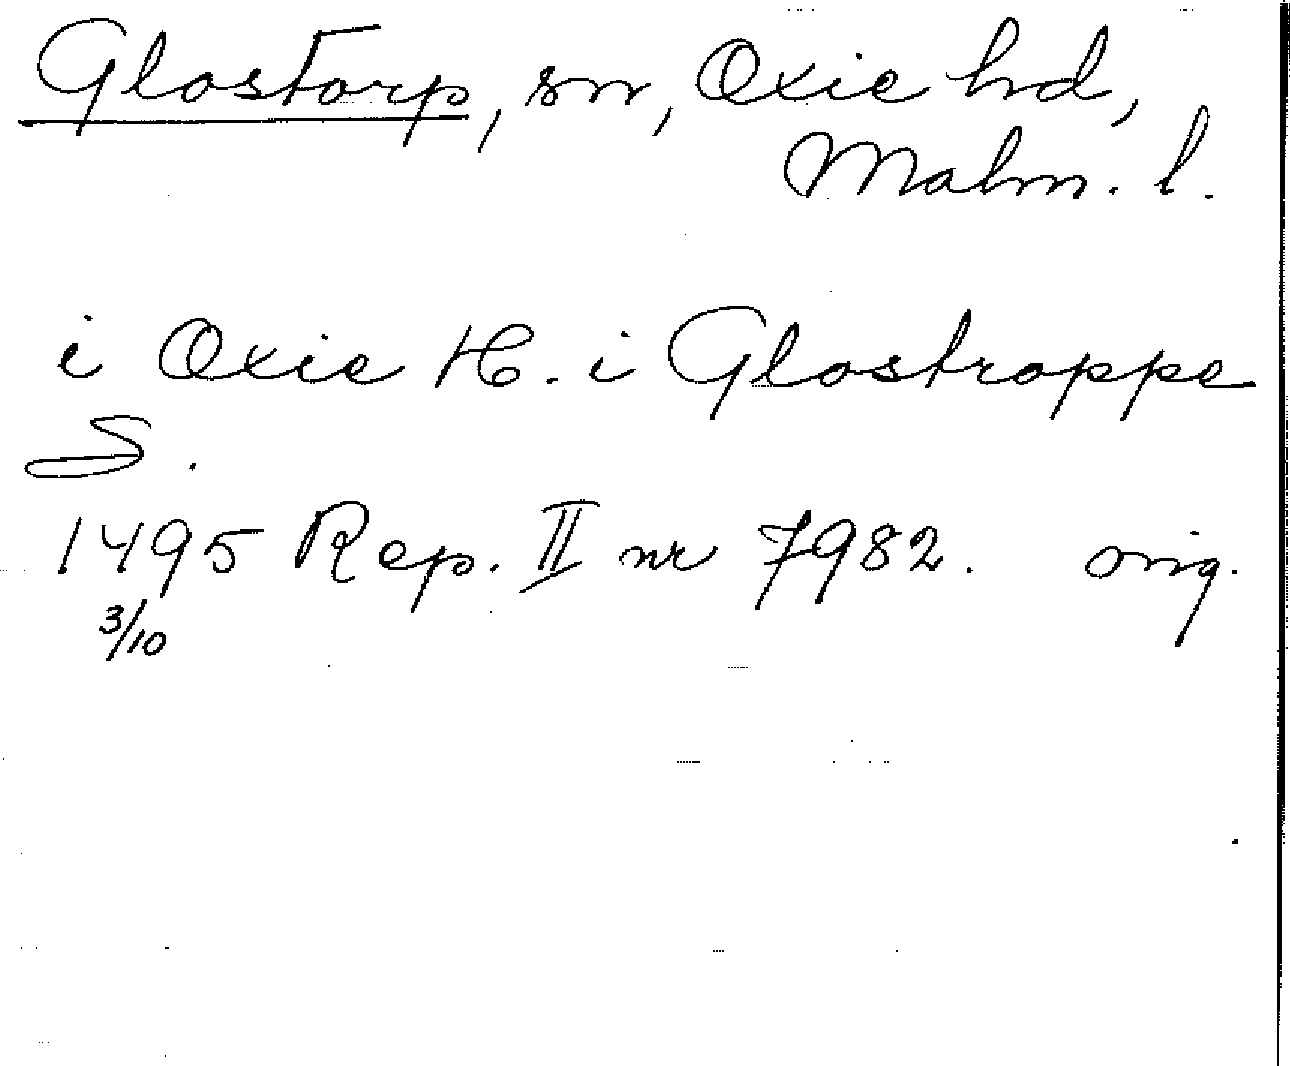 Glostorp, sn, Oxie hd,
Malm. l.
i Oxie H. i Glostroppe
S.
1495 Rep. II nr 7982. orig.
3/10